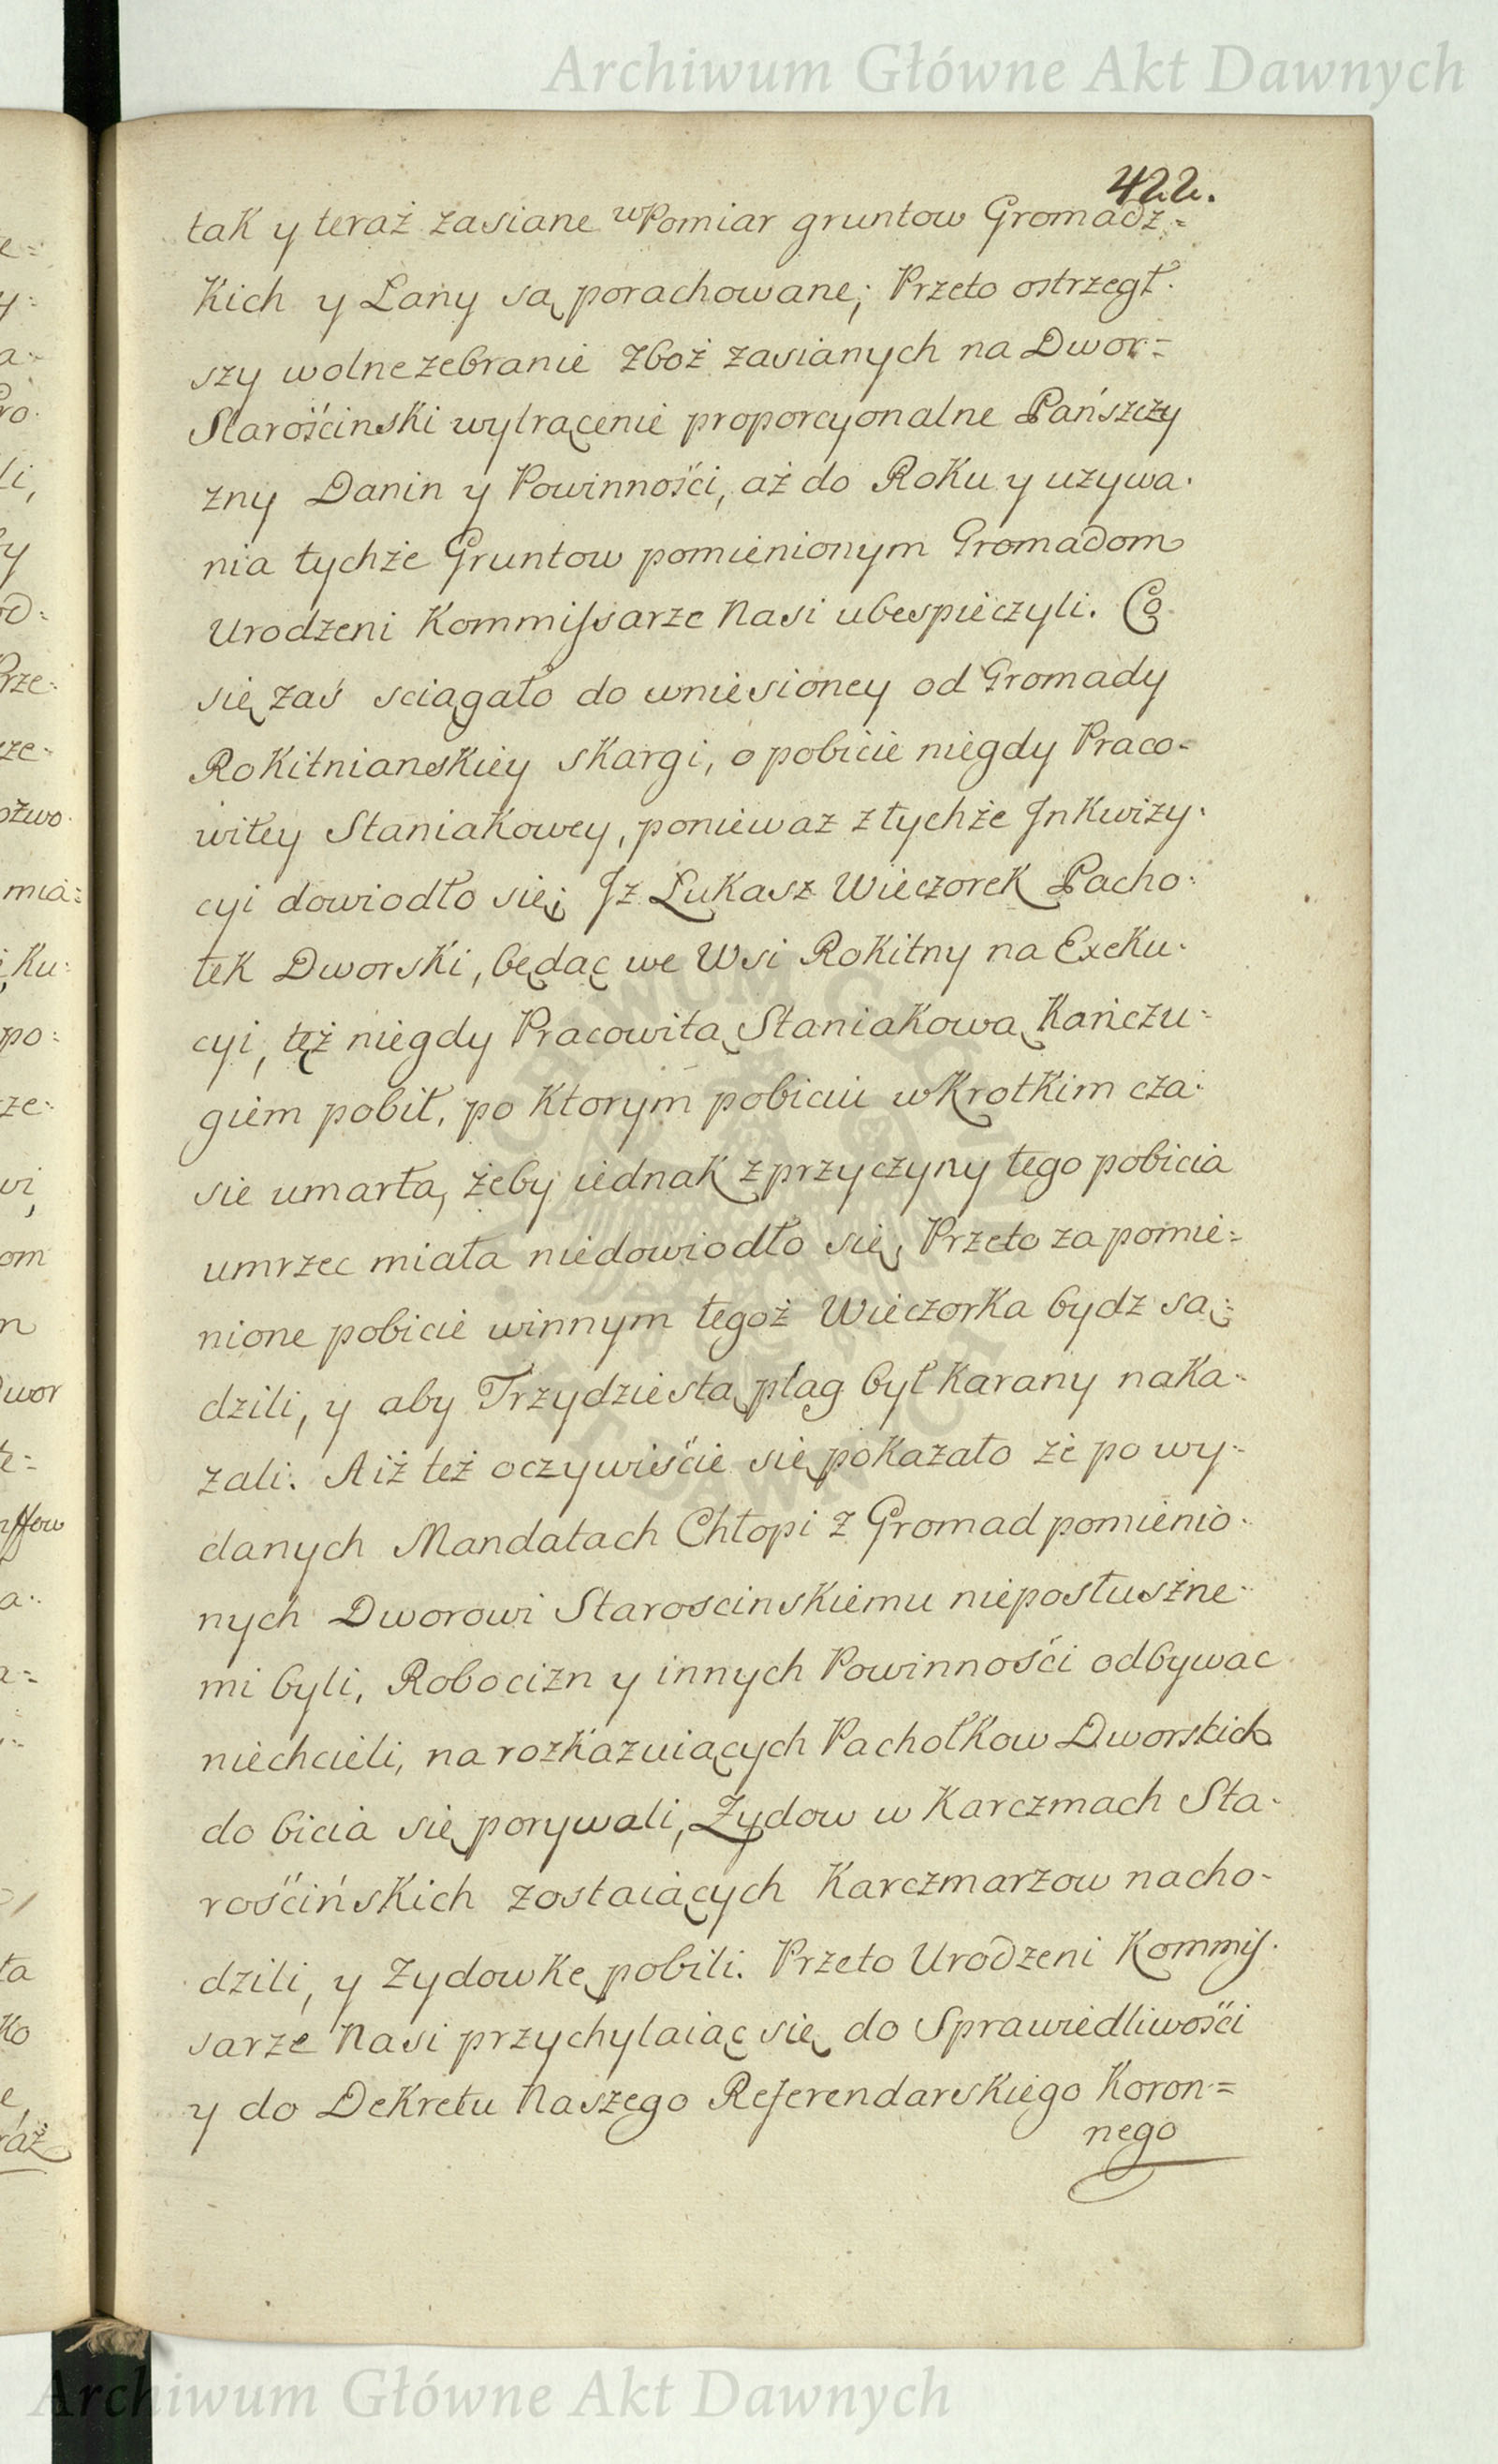 Archiwum Główne Akt Dawnych
422.
tak y teraż zasiane w Pomiar gruntow Gromadz=
kich y Lany są porachowane; Przeto ostrzegł.
szy wolne zebranie Zboż zasianych na Dwor=
Starościnski wytrącenie proporcyonalne Pańszczy
zny Danin y Powinności, aż do Roku y uzywa.
nia tychże Gruntow pomienionym Gromadom
Urodzeni Kommissarze Nasi ubespieczyli. Co
się zaś sciągało do wniesioney od Gromady
Rokitnianskiey skargi, o pobicie niegdy Praco=
witey Staniakowey, poniewaz z tychże Jnkwizy.
cyi dowiodło się; Jz Lukasz Wieczorek Pacho:
łek Dworski, będąc we Wsi Rokitny na Exeku.
cyi, też niegdy Pracowitą Staniakową Kańczu=
giem pobił, po ktorym pobiciu w krotkim cza:
sie umarła, żeby iednak z przyczyny tego pobicia
umrzec miała niedowiodło się, Przeto za pomie=
nione pobicie winnym tegoż Wieczorka bydz są:
dzili, y aby Trzydziestą plag był karany naka=
zali. A iż też oczywiście się pokazało że po wy=
danych Mandatach Chłopi z Gromad pomienio=
nych Dworowi Staroscinskiemu nieposłuszne=
mi byli, Robocizn y innych Powinności odbywac
niechcieli, na rozkazuiących Pachołkow Dworskich
do bicia się porywali, Zydow w Karczmach Sta=
rościńskich zostaiących Karczmarzow nacho=
dzili, y Zydowkę pobili. Przeto Urodzeni Kommis.
sarze Nasi przychylaiąc się do Sprawiedliwości
y do Dekretu Naszego Referendarskiego Koron=
nego
Archiwum Główne Akt Dawnych